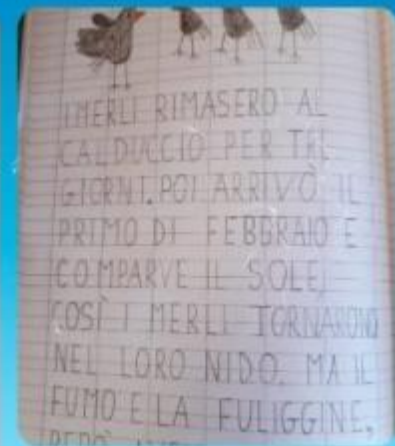 I MERLI RIMASERO AL
CALDUCCIO PER TRE
GIORNI. POI ARRIVÒ IL
PRIMO DI FEBBRAIO E
COMPARVE IL SOLE,
COSÌ I MERLI TORNARONO
NEL LORO NIDO. MA IL
FUMO E LA FULIGGINE,
PERÒ